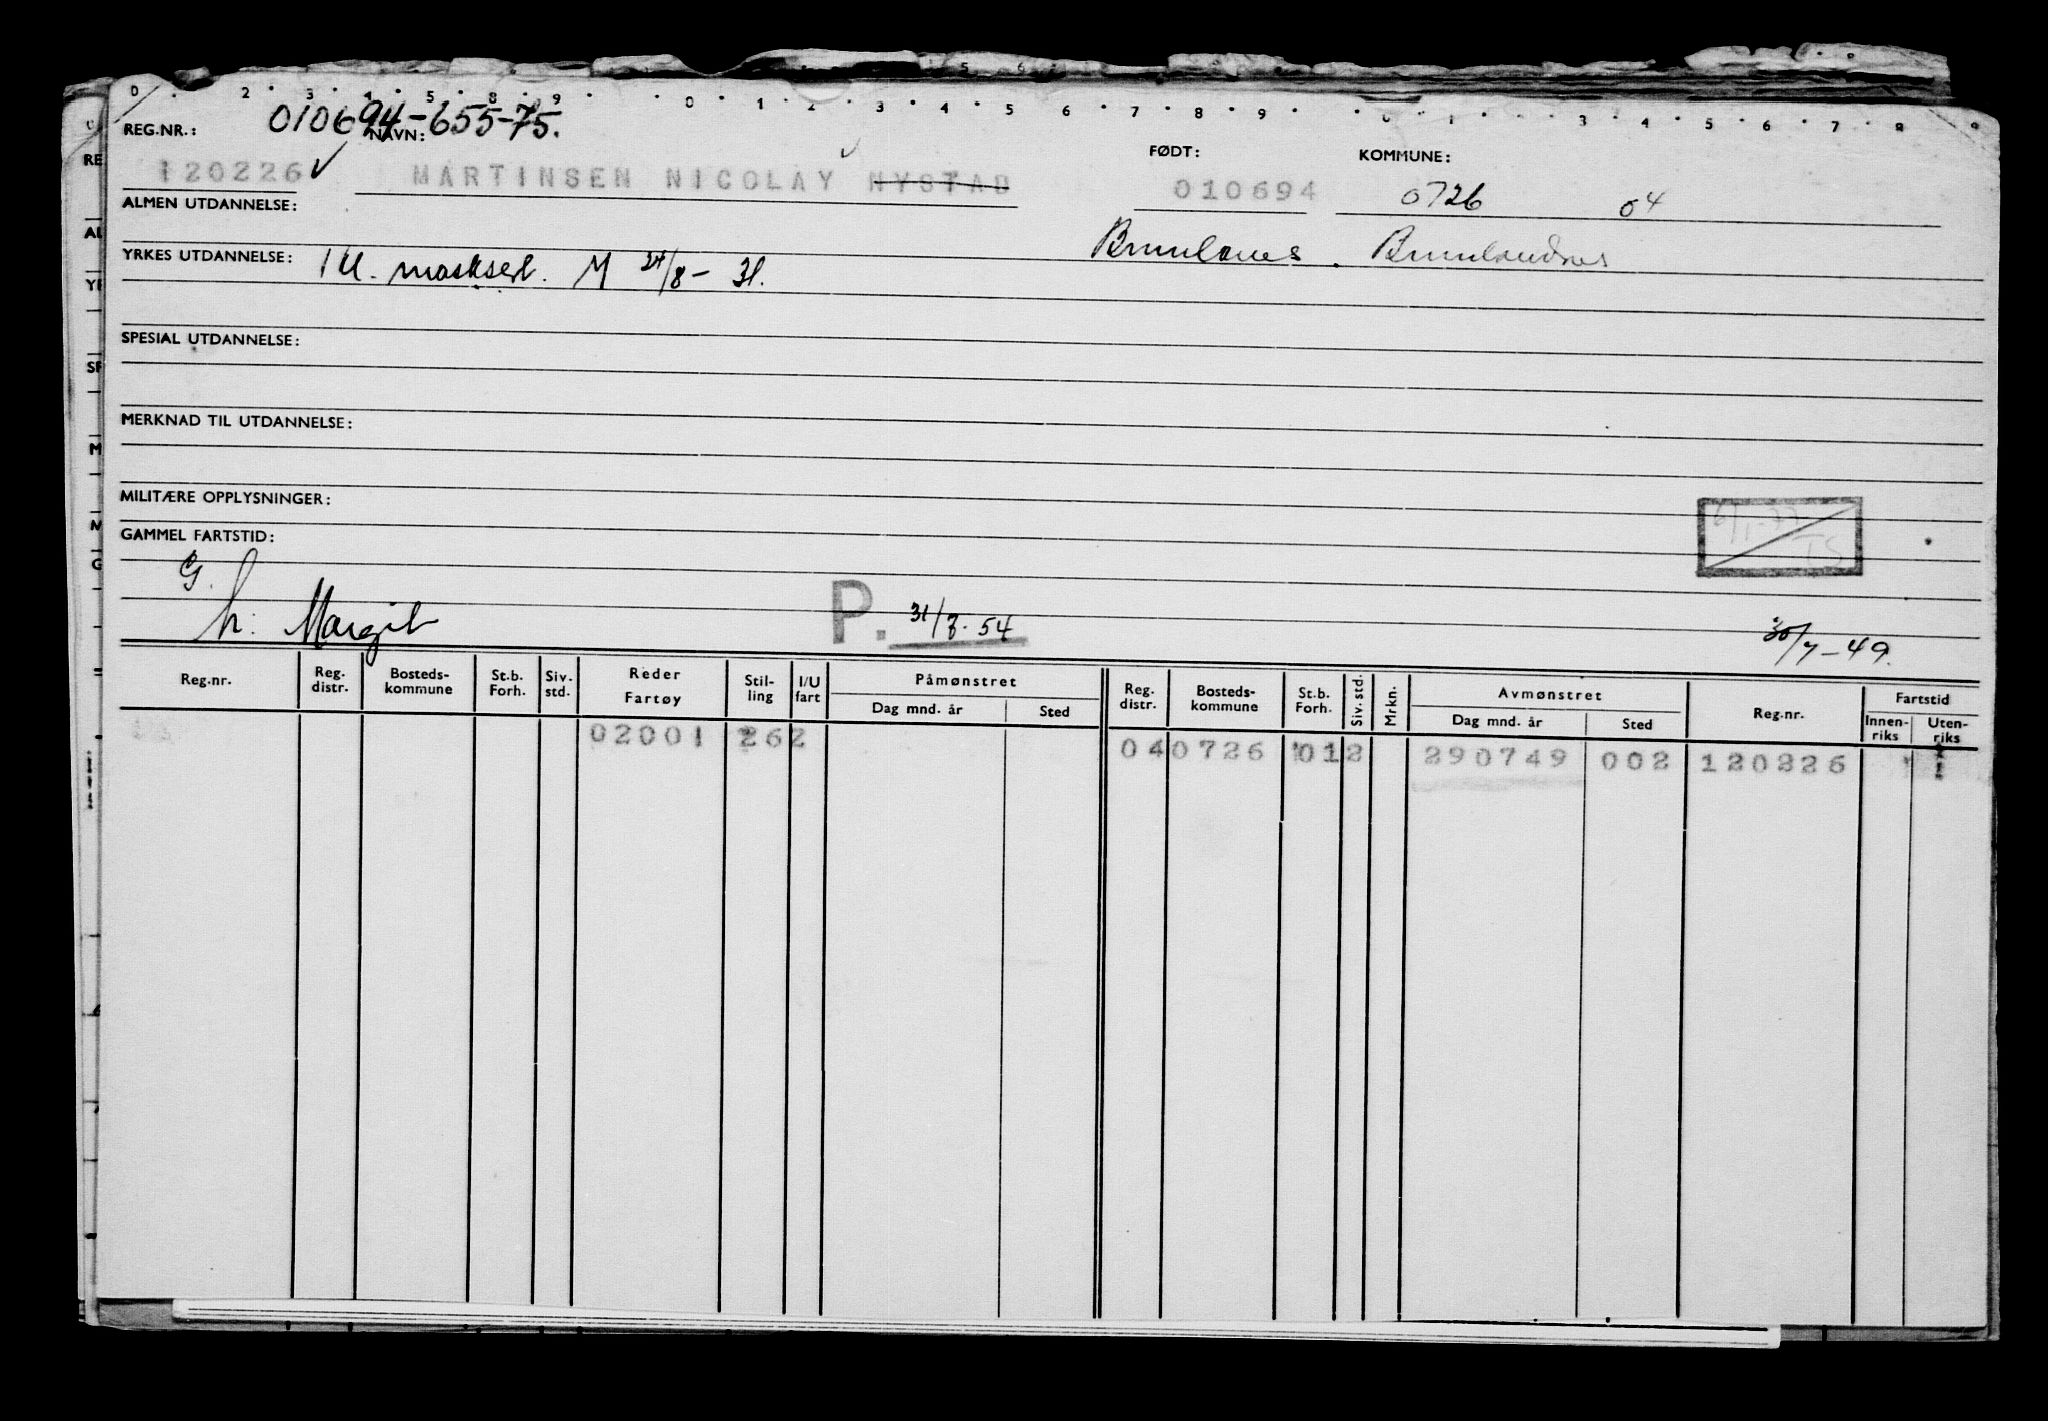 REG.NR.: 010694-655-75.
NAVN:
FØDT:
KOMMUNE:
120226 ✓ MARTINSEN NICOLAY NYSTAD 010694 0726 04
ALMEN UTDANNELSE:
Brunlanes. Brunlandnes
YRKES UTDANNELSE: M 24/8-31.
SPESIAL UTDANNELSE:
MERKNAD TIL UTDANNELSE:
MILITÆRE OPPLYSNINGER:
GAMMEL FARTSTID:
TS
G.
h: Margit P. 31/7.54 30/7-49.
Reg.nr. Reg. distr. Bosteds-kommune St.b. Forh. Siv. std. Reder Fartøy Stil-ling I/U fart Påmønstret Dag mnd. år Sted Reg. distr. Bosteds-kommune St.b. Forh. Siv. std. Mrkn. Avmønstret Dag mnd. år Sted Reg.nr. Fartstid Innen-riks Uten-riks
02001 262 040726 012 290749 002 120226